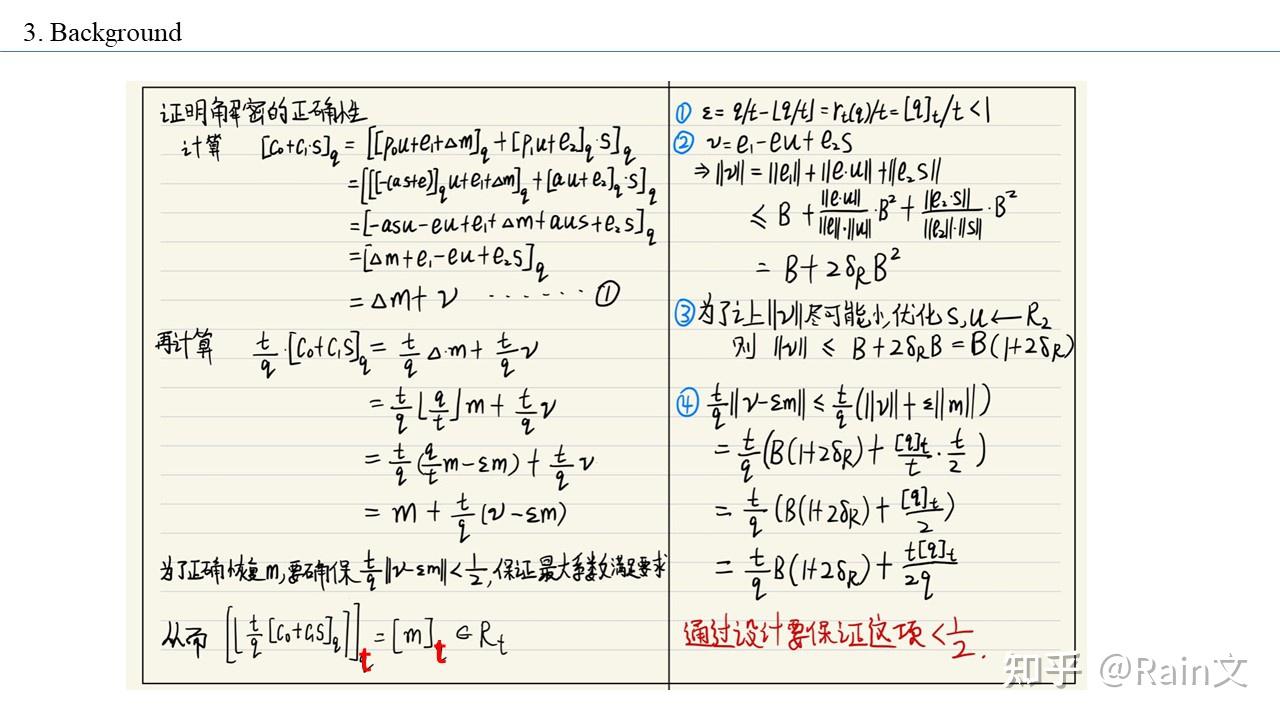 3. Background
证明解密的正确性
计算 [c₀+c₁·s]_q = [[p₀u+e₁+Δm]_q+[p₁u+e₂]_q·s]_q
=[[[-(as+e)]_q u+e₁+Δm]_q+[au+e₂]_q·s]_q
=[-asu-eu+e₁+Δm+aus+e₂s]_q
=[Δm+e₁-eu+e₂s]_q
=Δm+ν ······ ①
再计算 t/q·[c₀+c₁s]_q = t/q Δ·m + t/q ν
= t/q ⌊q/t⌋m + t/q ν
= t/q (q/t m-εm) + t/q ν
= m + t/q (ν-εm)
为了正确恢复m,要确保 t/q‖ν-εm‖<1/2,保证最大系数满足要求
从而 [⌊t/q[c₀+c₁s]_q⌉]_t = [m]_t ∈ R_t
① ε= q/t-⌊q/t⌋=r_t(q)/t=[q]_t/t<1
② ν=e₁-eu+e₂s
⇒‖ν‖=‖e₁‖+‖e·u‖+‖e₂s‖
≤ B + ‖e·u‖/‖e‖·‖u‖·B² + ‖e₂·s‖/‖e₂‖·‖s‖·B²
= B+2δ_R B²
③为了让‖ν‖尽可能小,优化s,u←R₂
则 ‖ν‖ ≤ B+2δ_R B=B(1+2δ_R)
④ t/q‖ν-εm‖ ≤ t/q(‖ν‖+ε‖m‖)
= t/q(B(1+2δ_R)+[q]_t/t·t/2)
= t/q(B(1+2δ_R)+[q]_t/2)
= t/q B(1+2δ_R)+t[q]_t/2q
通过设计要保证这项<1/2.
知乎 @Rain文